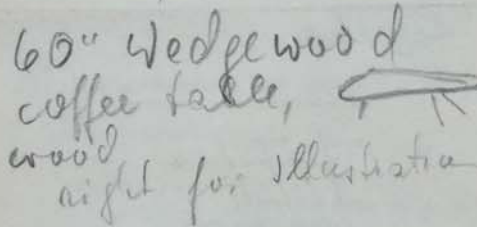 60" Wedgewood
coffee table,
wood
right for illustration